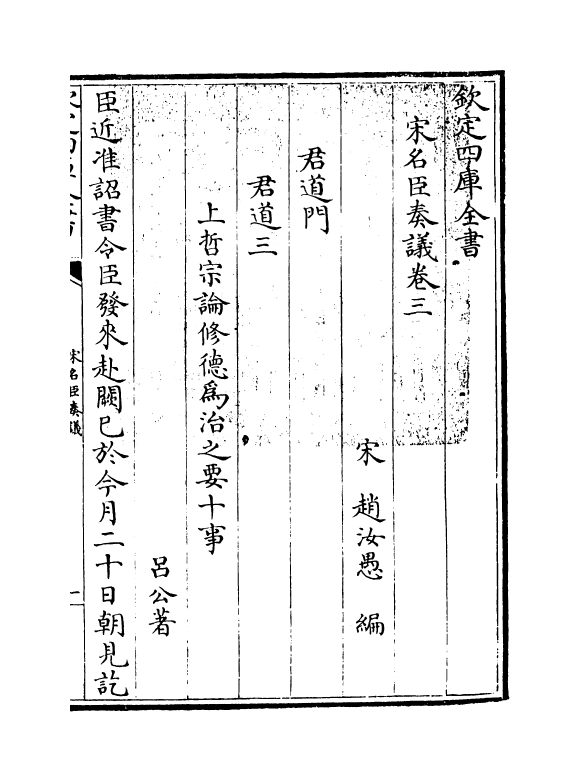 欽定四庫全書
宋名臣奏議卷三
宋 趙汝愚 編
君道門
君道三
上哲宗論修德爲治之要十事
呂公著
臣近准詔書令臣發來赴闕已於今月二十日朝見訖
宋名臣奏議